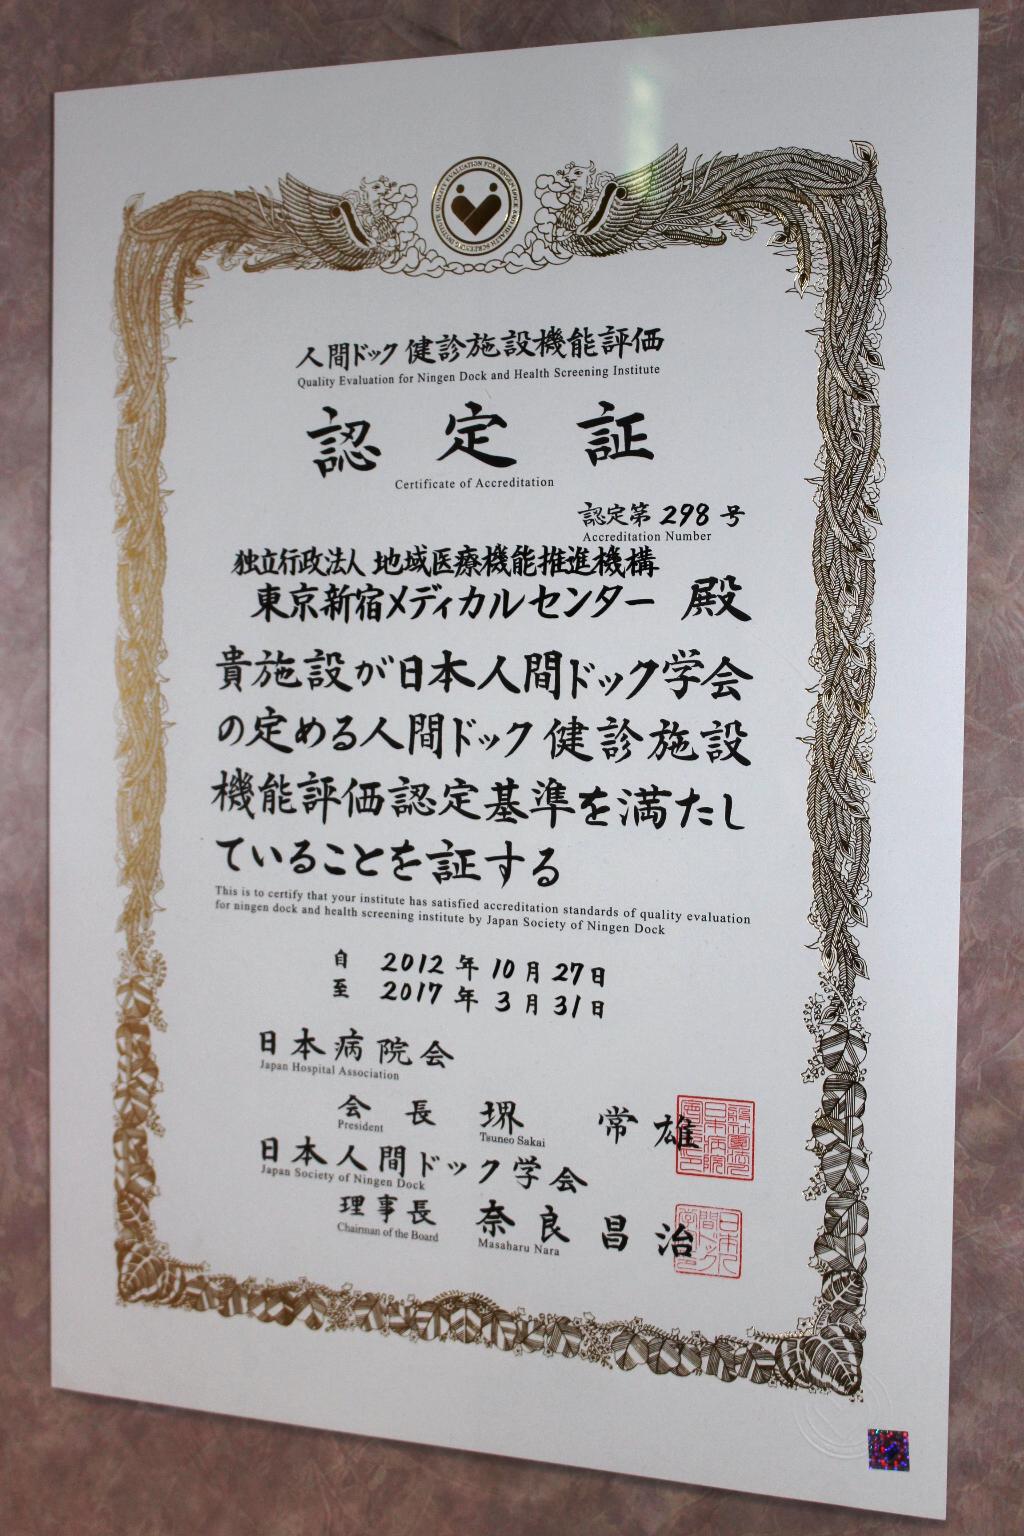 QUALITY EVALUATION FOR NINGEN DOCK AND HEALTH SCREENING INSTITUTE
人間ドック健診施設機能評価
Quality Evaluation for Ningen Dock and Health Screening Institute
認定証
Certificate of Accreditation
認定第 298 号
Accreditation Number
独立行政法人 地域医療機能推進機構
東京新宿メディカルセンター 殿
貴施設が日本人間ドック学会
の定める人間ドック健診施設
機能評価認定基準を満たし
ていることを証する
This is to certify that your institute has satisfied accreditation standards of quality evaluation
for ningen dock and health screening institute by Japan Society of Ningen Dock
自 2012 年 10 月 27 日
至 2017 年 3 月 31 日
日本病院会
Japan Hospital Association
会長 堺 常雄
President Tsuneo Sakai
日本人間ドック学会
Japan Society of Ningen Dock
理事長 奈良昌治
Chairman of the Board Masaharu Nara